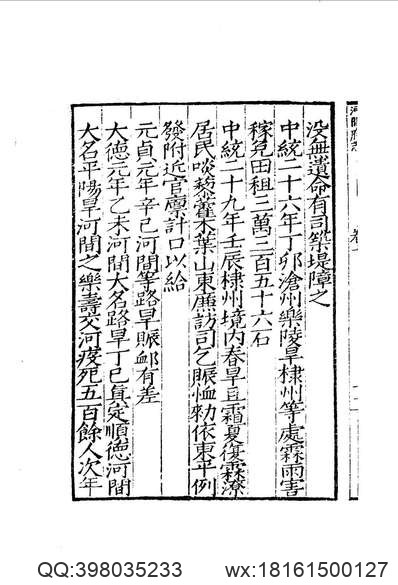 没無遺命有司築堤障之
中統二十六年丁卯滄州樂陵旱棣州等處霖雨害
稼免田租三萬三百五十六石
中統二十九年壬辰棣州境内春旱且霜夏復霖潦
居民啖藜藿木葉山東廉訪司乞賑恤勑依東平例
發附近官廪計口以給
元貞元年辛巳河間等路旱賑䘏有差
大德元年乙未河間大名路旱丁巳真定順德河間
大名平陽旱河間之樂壽交河疫死五百餘人次年
QQ:398035233
wx:18161500127